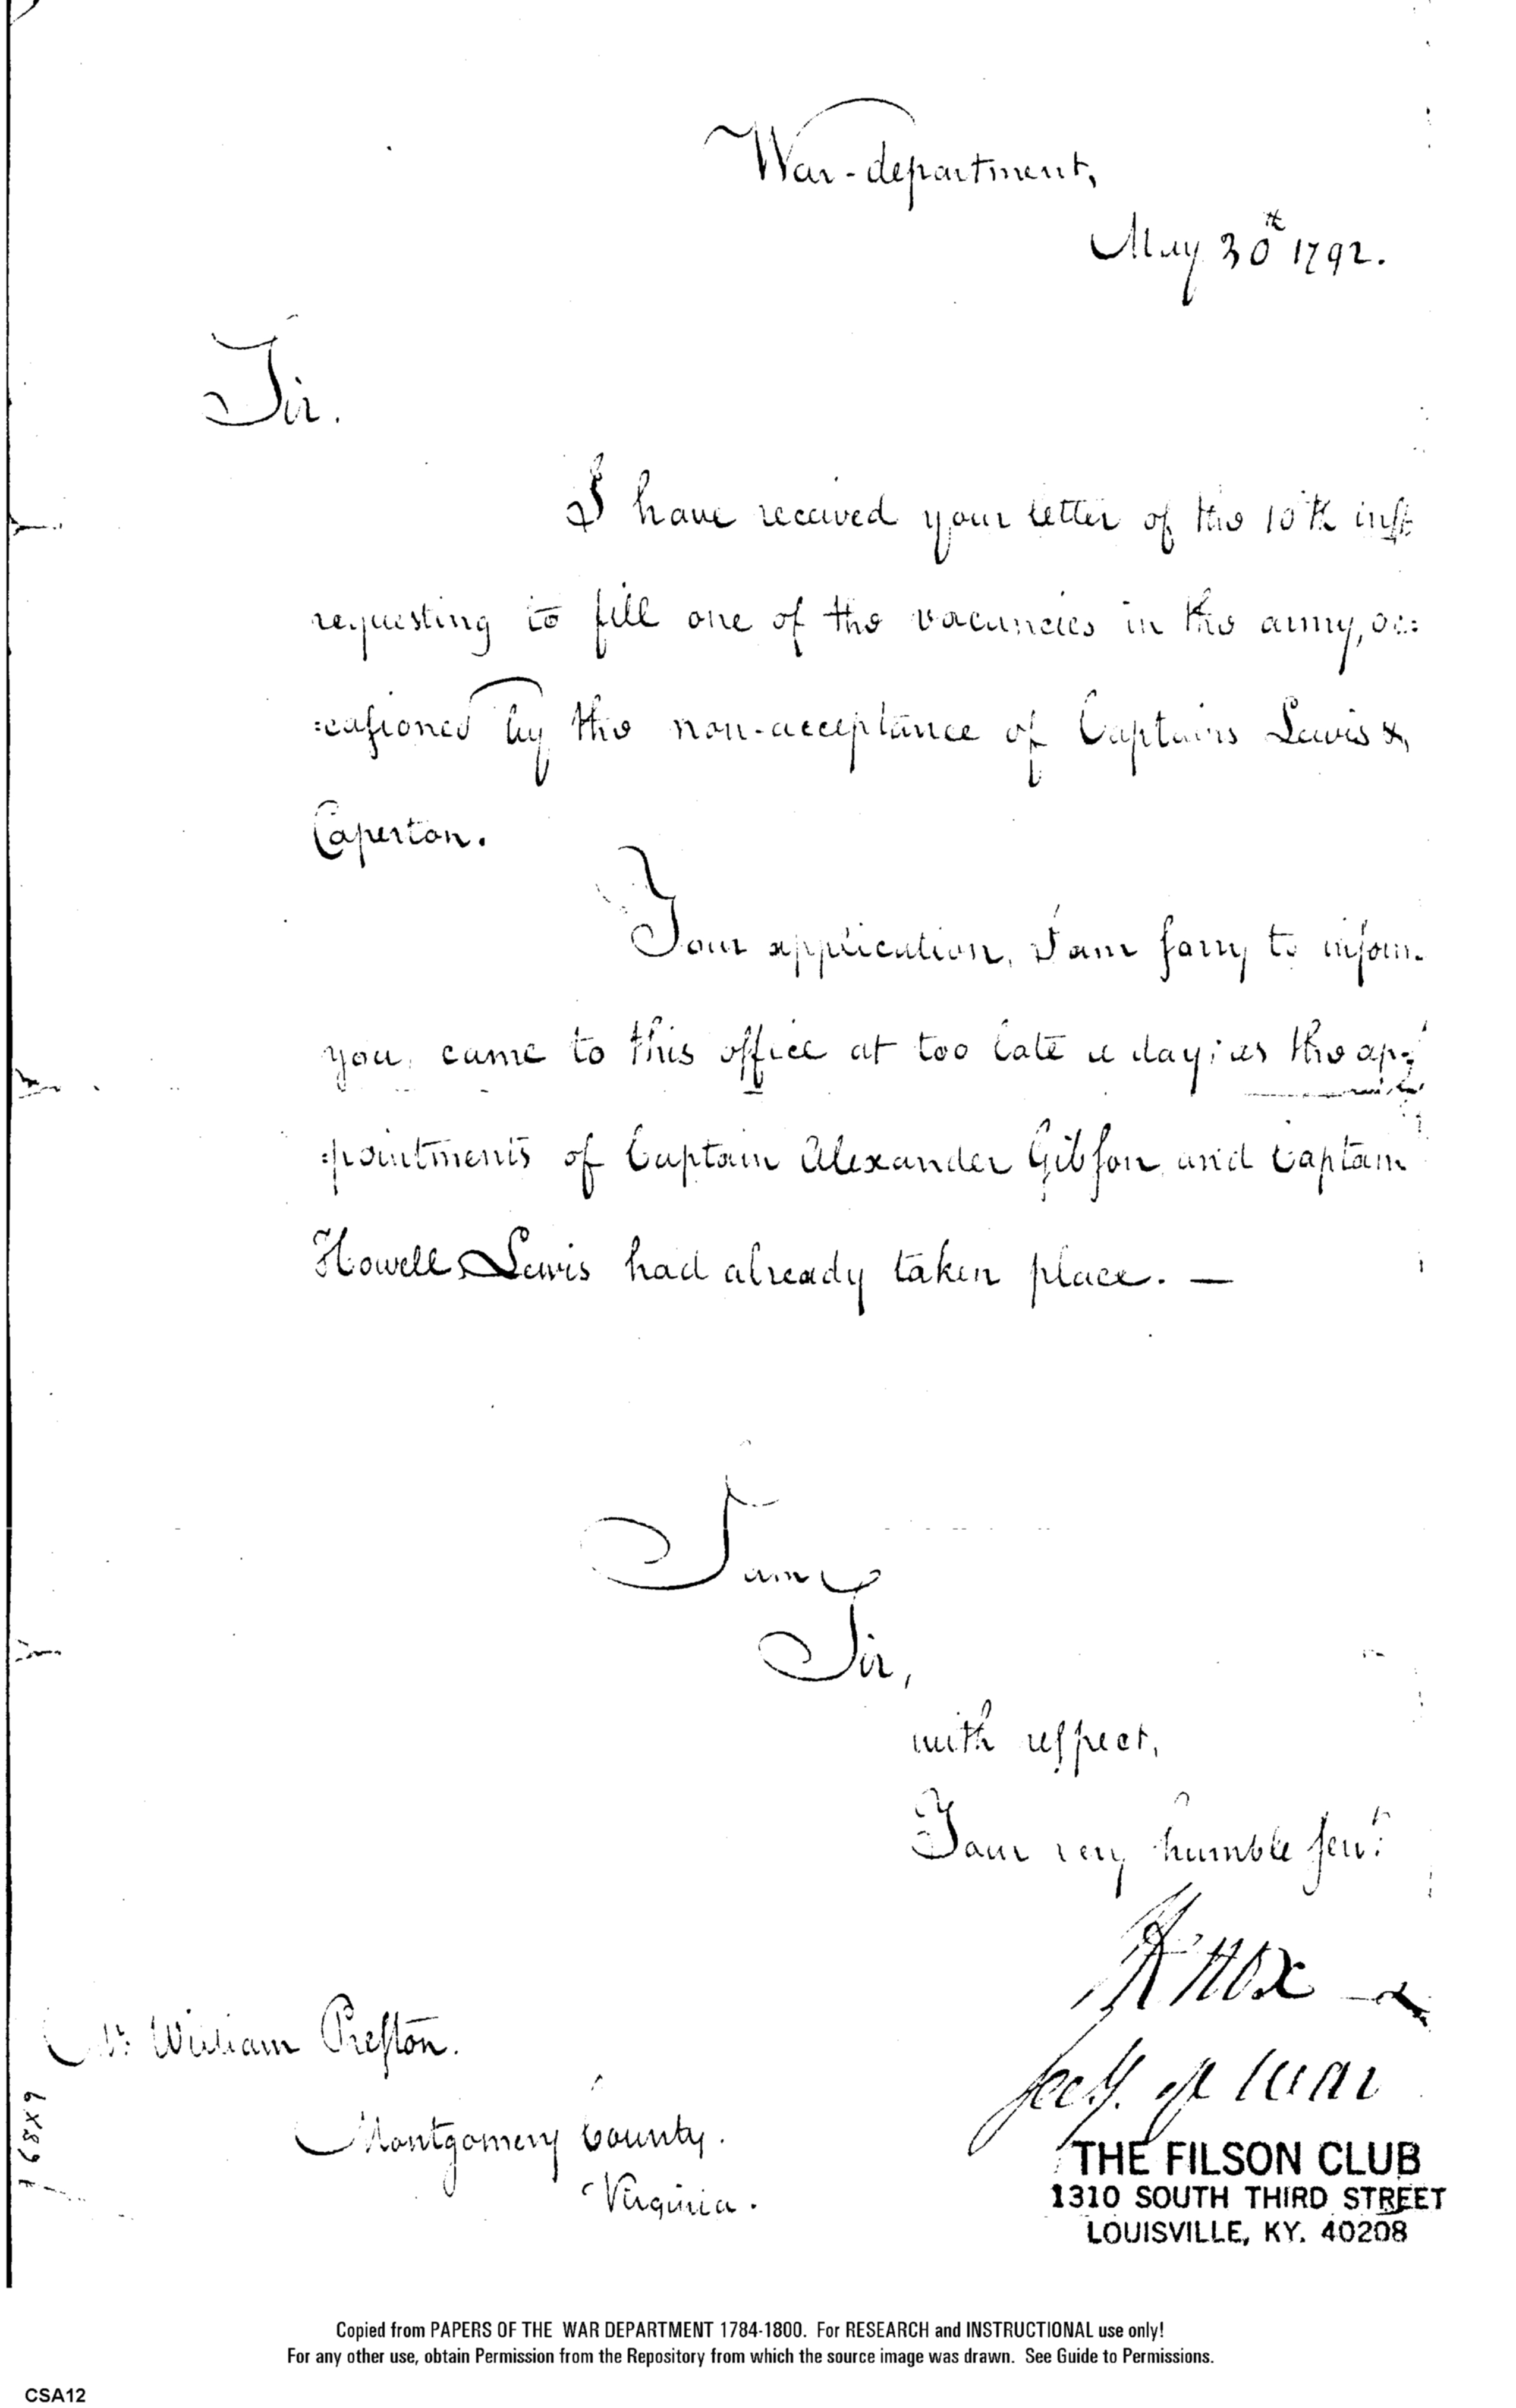 War-department,
May 30th 1792.
Sir.
I have received your letter of the 10th inst
requesting to fill one of the vacancies in the army, oc:
:casioned by the non-acceptance of Captains Lewis &
Caperton.
Your application, I am sorry to inform
you, came to this office at too late a day; as the ap:
:pointments of Captain Alexander Gibson and Captain
Howell Lewis had already taken place. —
I am
Sir,
with respect,
Your very humble servt.
HKnox
Secy. of War
Mr. William Preston.
Montgomery County.
Virginia.
THE FILSON CLUB
1310 SOUTH THIRD STREET
LOUISVILLE, KY. 40208
Copied from PAPERS OF THE WAR DEPARTMENT 1784-1800. For RESEARCH and INSTRUCTIONAL use only!
For any other use, obtain Permission from the Repository from which the source image was drawn. See Guide to Permissions.
CSA12